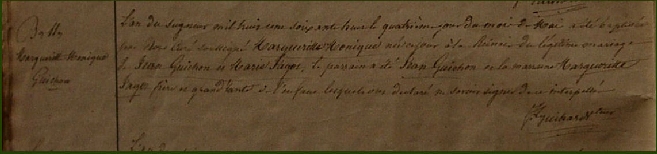 Bapt.
Marguerite Monique
Guichon
L'an du seigneur mil huit cent soixante trois le quatrième jour du mois de Mai a été baptisée
par Nous Curé soussigné Marguerite Monique née ce jour à la Réunion du légitime mariage
de Jean Guichon et Marie Page, le parrain a été Jean Guichon et la marraine Marguerite
Page, frère et grand'tante de l'enfant lesquels ont déclaré ne savoir signer de ce interpellés